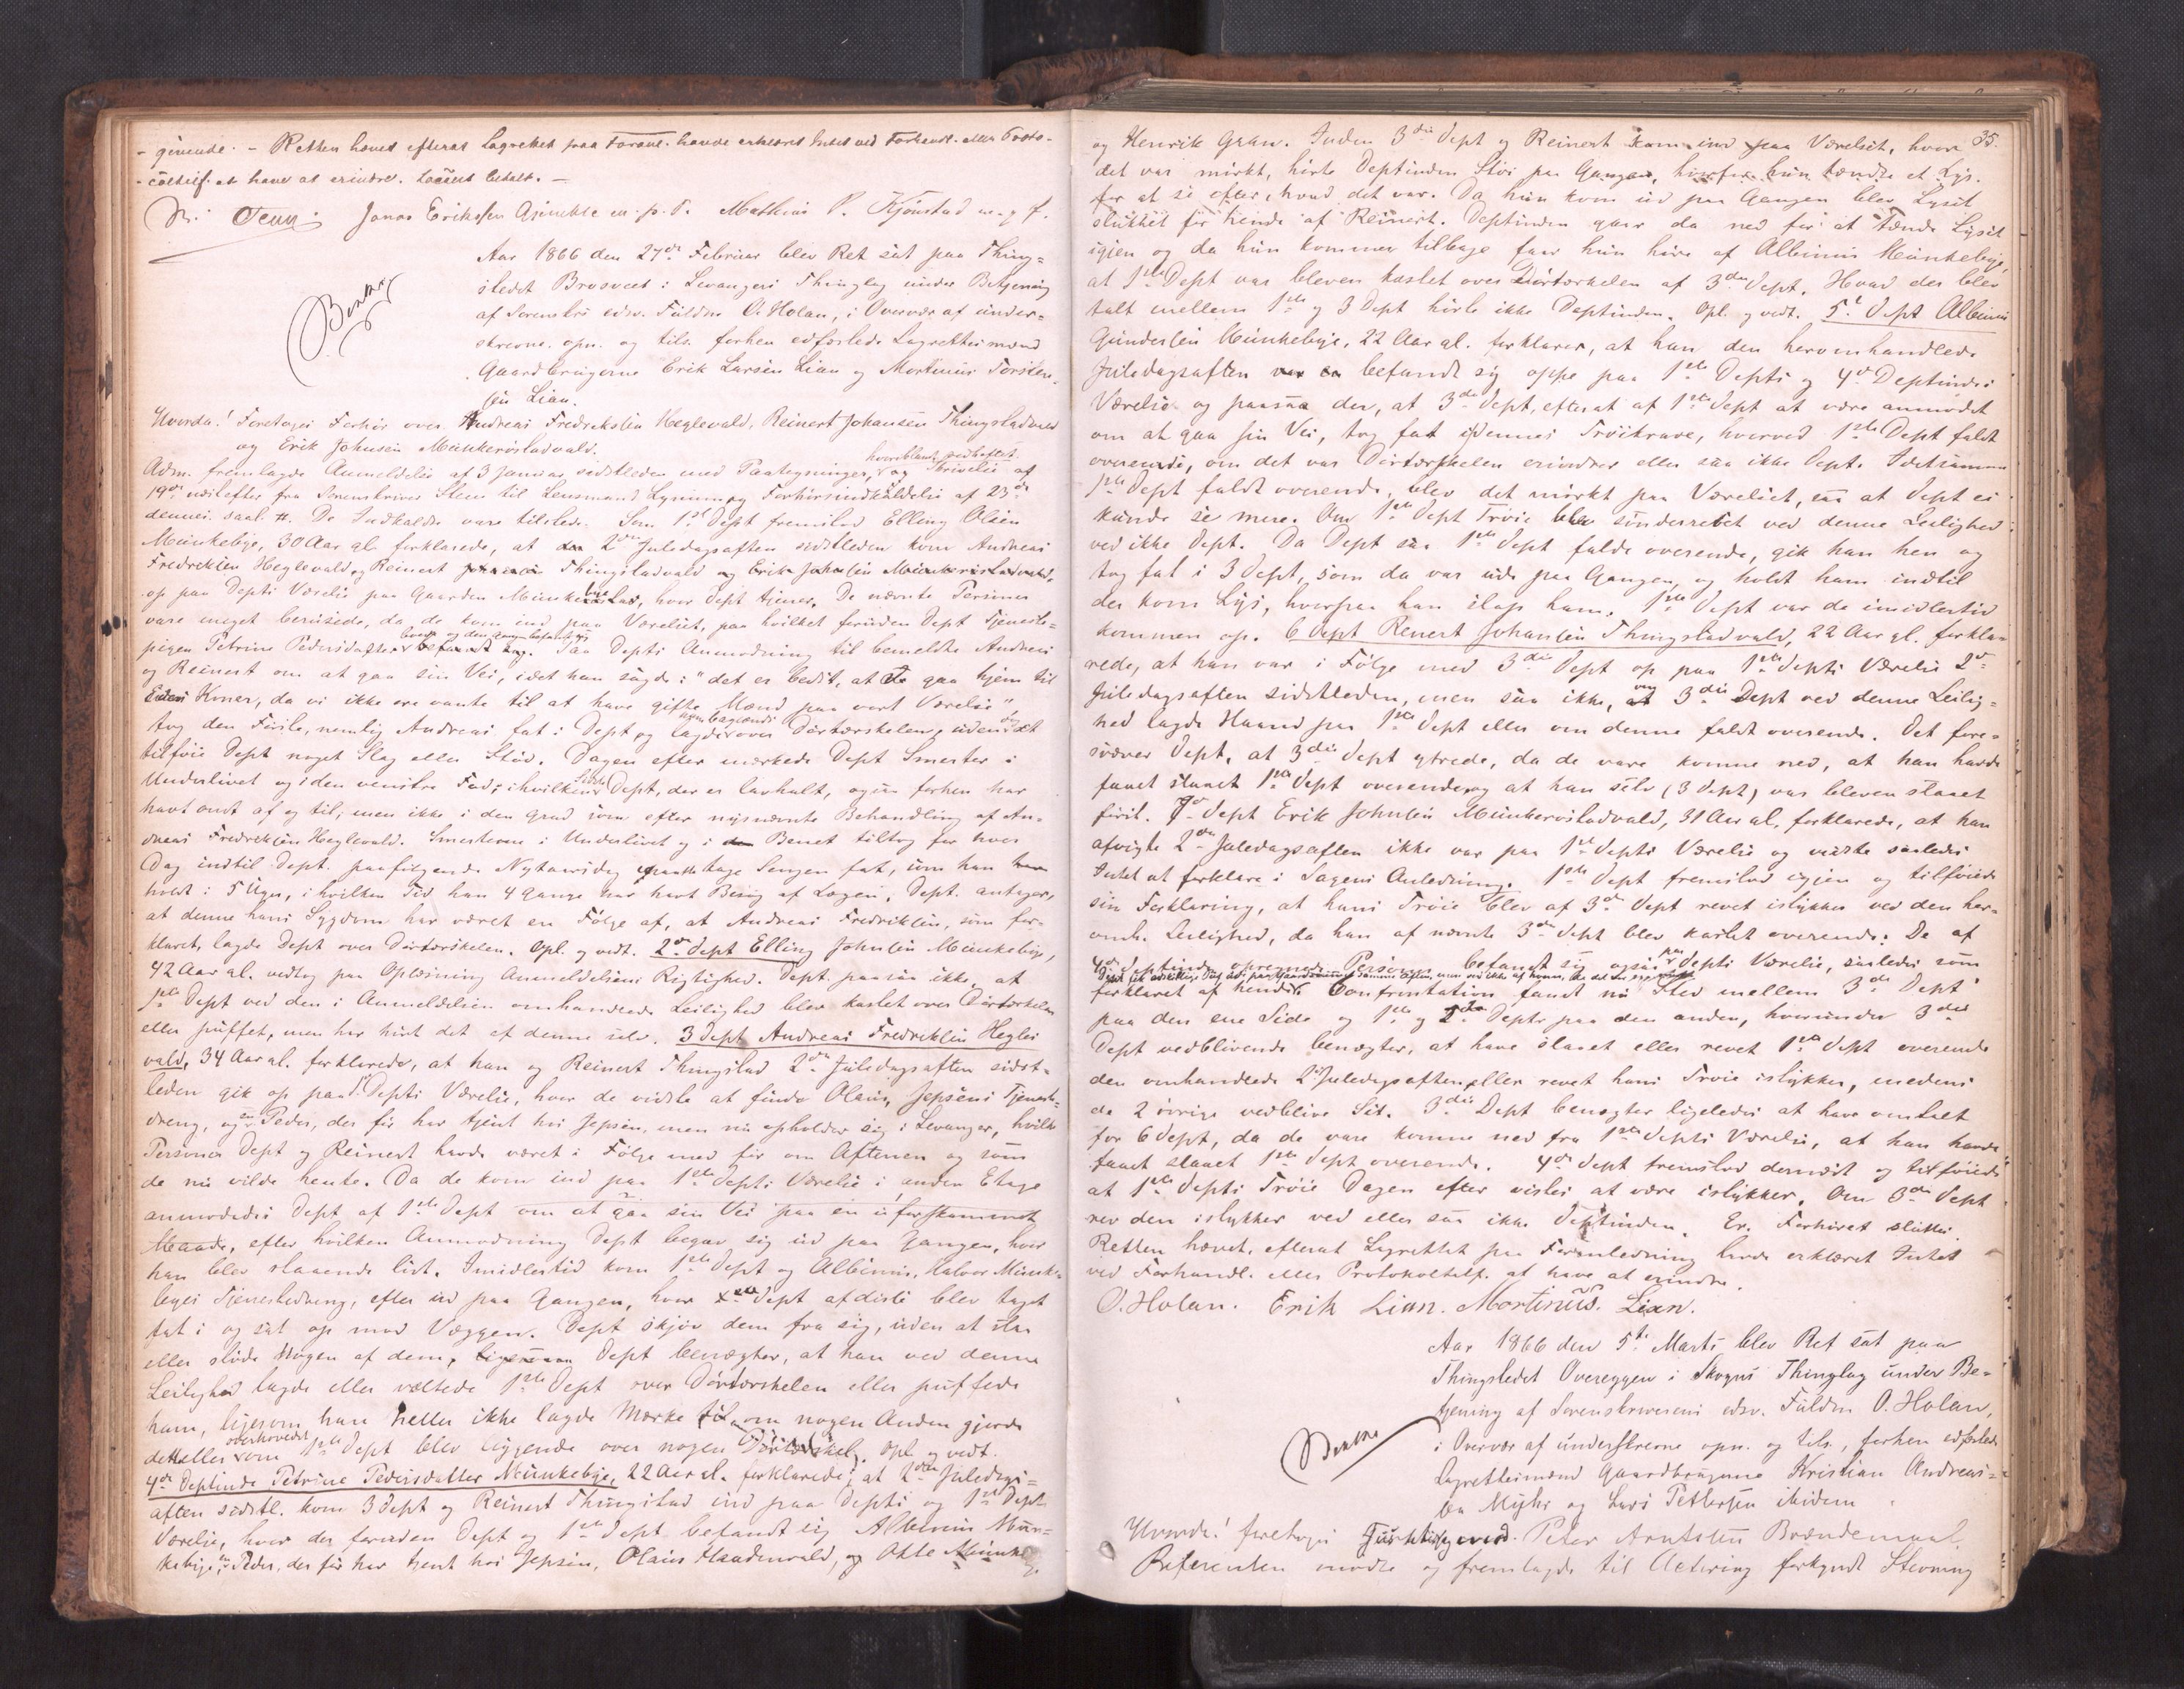 - givende. - Retten hævet efterat Lagrettet paa Foranl. havde erklæret Intet ved Forhandl. eller Proto-
- coltilf. at have at erindre. Locales betalt. -
Jonas Eriksen m. p. P. Mathias P. Kjönstad m. p. P.
Aar 1866 den 27de Februar blev Ret sat paa Thing-
stedet Brusveet i Levangers Thinglag under Betjening
af Sorenskrs edsv. Fuldm. O. Holan, i Overvær af under-
skrevne. opn. og tils. forhen edfæstede Lagrettesmænd
Gaardbrugerne Erik Larsen Lian og Mortinus Torsten-
sen Lian.
Hvorda! Foretoges Forhör over Andreas Fredriksen Heglevald, Reinert Johansen Thingstadvald
og Erik Johnsen Munkerösladvald.
hvoriblandt vedheftet
Adm. fremlagde Anmeldelse af 3 Januar sidstleden med Paategninger, og Skrivelse af
19de næstefter fra Sorenskriver Steen til Lensmand Lynum og Forhörsindkaldelse af 23de
dennes. saal. #. De Indkaldte vare tilstede. Som 1ste Dept fremstod Elling Olsen
Munkebye, 30 Aar gl. forklarede, at 2den Juledagsaften sidstleden kom Andreas
Fredriksen Heglevald og Reinert Thingstadvald og Erik Johnsen Munkerösladvald,
op paa Depts Værelse paa Gaarden Munkeby, hvor Dept tjener. De nævnte Personer
vare meget berusede, da de kom ind paa Værelset, paa hvilket foruden Dept Tjeneste-
pigen Petrine Pedersdatter befandt sig. Paa Depts Anmodning til bemeldte Andreas
og Reinert om at gaa sin Vei, idet han sagde: "det er bedst, at De gaa hjem til
Eders Koner, da vi ikke ere vante til at have gifte Mænd paa vort Værelse",
tog den Förste, nemlig Andreas fat i Dept og lagde over Dörtærskelen, uden at
tilföie Dept noget Slag eller Stöd. Dagen efter mærkede Dept Smerter i
Underlivet og i den venstre Fod, i hvilken Dept, der er lavhalt, ogsaa forhen har
havt ondt af og til, men ikke i den Grad som efter nysnævnte Behandling af An-
dreas Fredriksen Heglevald. Smerterne i Underlivet og i Benet tiltog for hver
Dag indtil Dept. paafölgende Nytaarsdag maatte tage Sengen fat, som han
holdt i 5 Uger, i hvilken Tid han 4 Gange har havt Besög af Lægen. Dept. antager,
at denne hans Sygdom har været en Fölge af, at Andreas Fredriksen, som for-
klaret, lagde Dept over Dörtærskelen. Opl. og vedt. 2den Dept Elling Johnsen Munkebye,
42 Aar gl. vedtog paa Oplæsning Anmeldelsens Rigtighed. Dept. paasaa ikke, at
1ste Dept ved den i Anmeldelsen omhandlede Leilighed blev kastet over Dörtærskelen
eller puffet, men har hört det af denne selv. 3 Dept Andreas Fredriksen Hegle-
vald, 34 Aar gl. forklarede, at han og Reinert Thingstad 2den Juledagsaften sidst-
leden gik op paa 1ste Depts Værelse, hvor de vidste at finde Olaus, Jepsens Tjeneste-
dreng, og en Peder, der för har tjent hos Jepsen, men nu opholder sig i Levanger, hvilke
Personer Dept og Reinert havde været i Fölge med för om Aftenen og som
de nu vilde hente. Da de kom ind paa 1ste Depts Værelse i anden Etage
anmodedes Dept af 1ste Dept om at gaa sin Vei paa en uforskammet
Maade, efter hvilken Anmodning Dept begav sig ud paa Gangen, hvor
han blev staaende lidt. Imidlertid kom 1ste Dept og Albinus, Halvor Munke-
byes Tjenestedreng, efter ud paa Gangen, hvor Dept af disse blev taget
fat i og sat op mod Væggen. Dept skjöv dem fra sig, uden at slaa
eller støde Nogen af dem, Dept benægter, at han ved denne
Leilighed lagde eller væltede 1ste Dept over Dörtærskelen eller puffede
ham, ligesom han heller ikke lagde Mærke til om nogen Anden gjorde
dette eller om overhovedet 1ste Dept blev liggende over nogen Dörtærskel. Opl. og vedt.
4de Deptinde Petrine Pedersdatter Munkebye, 22 Aar gl. forklarede, at 2den Juledags-
aften sidstl. kom 3 Dept og Reinert Thingstad ind paa Depts og 1ste Depts
Værelse, hvor der foruden Dept og 1ste Dept befandt sig Albinus Mun-
kebye, en Peder, der för har tjent hos Jepsen, Olaus Haadenvald, og Okle Munkeby.
35.
og Henrik Gran. Inden 3die Dept og Reinert kom ind paa Værelset, hvor
det var mörkt, hörte Deptinden Stöi paa Gangen, hvorfor hun tændte et Lys
for at se efter, hvad det var. Da hun kom ud paa Gangen blev Lyset
slukket for hende af Reinert. Deptinden gaar da ned for at tænde Lyset
igjen og da hun kommer tilbage faar hun höre af Albinus Munkebye,
at 1ste Dept var bleven kastet over Dörtærskelen af 3die Dept. Hvad der blev
talt mellem 1ste og 3 Dept hörte ikke Deptinden. Opl. og vedt. 5te Dept Albinus
Gundersen Munkebye, 22 Aar gl. forklarer, at han den heromhandlede
Juledagsaften befandt sig oppe paa 1ste Depts og 4de Deptindes
Værelse og paasaa der, at 3die Dept, efterat af 1ste Dept at være anmodet
om at gaa sin Vei, tog fat i dennes Tröiekrave, hvorved 1ste Dept faldt
overende, om det var Dörtærskelen erindrer eller saa ikke Dept. Idetsamme
1ste Dept faldt overende, blev det mörkt paa Værelset, saa at Dept ei
kunde se mere. Om 1ste Dept Tröie blev sönderrevet ved denne Leilighed
ved ikke Dept. Da Dept saa 1ste Dept falde overende, gik han hen og
tog fat i 3 Dept, som da var ude paa Gangen og holdt ham indtil
der kom Lys, hvorpaa han slap ham. 1ste Dept var da imidlertid
kommen op. 6 Dept Renert Johansen Thingstadvald, 22 Aar gl. forkla-
rede, at han var i Fölge med 3die Dept op paa 1ste Depts Værelse 2den
Juledagsaften sidstleden, men saa ikke, om 3die Dept ved denne Leilig-
hed lagde Haand paa 1ste Dept eller om denne faldt overende. Det fore-
svæver Dept, at 3die Dept ytrede, da de vare komne ned, at han havde
faaet slaaet 1ste Dept overende og at han selv (3 Dept) var bleven slaaet
först. 7de Dept Erik Johnsen Munkerösladvald, 31 Aar gl. forklarede, at han
afvigte 2den Juledagsaften ikke var paa 1ste Depts Værelse og vidste saaledes
Intet at forklare i Sagens Anledning. 1ste Dept fremstod igjen og tilföiede
sin Forklaring, at hans Tröie blev af 3die Dept revet istykker ved den her-
omh. Leilighed, da han af nævnte 3die Dept blev kastet overende. De af
4de Deptinde opnævnte Personer befandt sig ogsaa paa Depts Værelse, saaledes som
forklaret af hende. Confrontation fandt nu Sted mellem 3die Dept
paa den ene Side og 1ste og 5te Depts paa den anden, hvorunder 3die
Dept vedblivende benægter, at have slaaet eller revet 1ste Dept overende
den omhandlede 2 Juledagsaften eller revet hans Tröie istykker, medens
de 2 övrige vedblive Sit. 3die Dept benægter ligeledes at have omtalt
for 6 Dept, da de vare komne ned fra 1ste Depts Værelse, at han havde
faaet slaaet 1ste Dept overende. 4de Dept fremstod dernæst og tilföiede
at 1ste Depts Tröie Dagen efter vistes at være istykker. Om 3die Dept
rev den istykker ved eller saa ikke Deptinden. Er. Forhöret sluttet.
Retten hævet, efterat Lagrettet paa Foranledning havde erklæret Intet
ved Forhandl. eller Protokoltilf. at have at erindre.
O. Holan. Erik Lian. Mortinus. Lian.
Aar 1866 den 5te Marts blev Ret sat paa
Thingstedet Overeggen i Skogns Thinglag under Be-
tjening af Sorenskriverens edsv. Fuldm. O. Holan,
i Overvær af underskrevne opn. og tils., forhen edfæstede
Lagrettesmænd Gaardbrugerne Kristian Andreas-
sen Myhr og Lars Pettersen ibidem
Hvorda! foretoges ved. Peter Arntsen Brændemoal.
Referenten mödte og fremlagde til Actering forkyndt Stevning